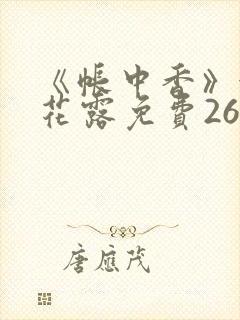 《帐中香》
花露免費26
唐应茂